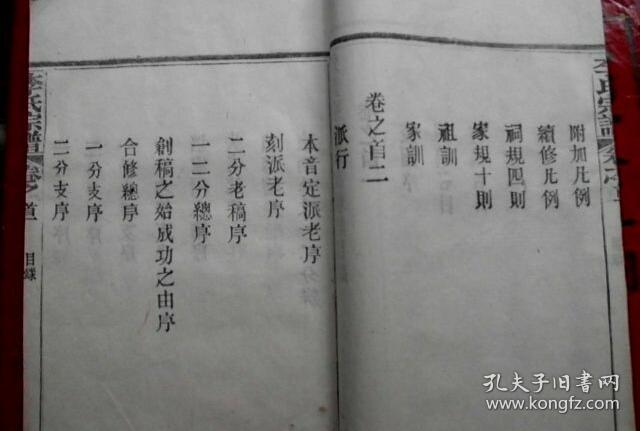 李氏宗譜
附加凡例
續修凡例
祠規四則
家規十則
祖訓
家訓
卷之首二
派行
本音定派老序
刻派老序
二分老稿序
一二分總序
創稿之始成功之由序
合修總序
一分支序
二分支序
李氏宗譜 卷之首 目錄
孔夫子旧书网
www.kongfz.com